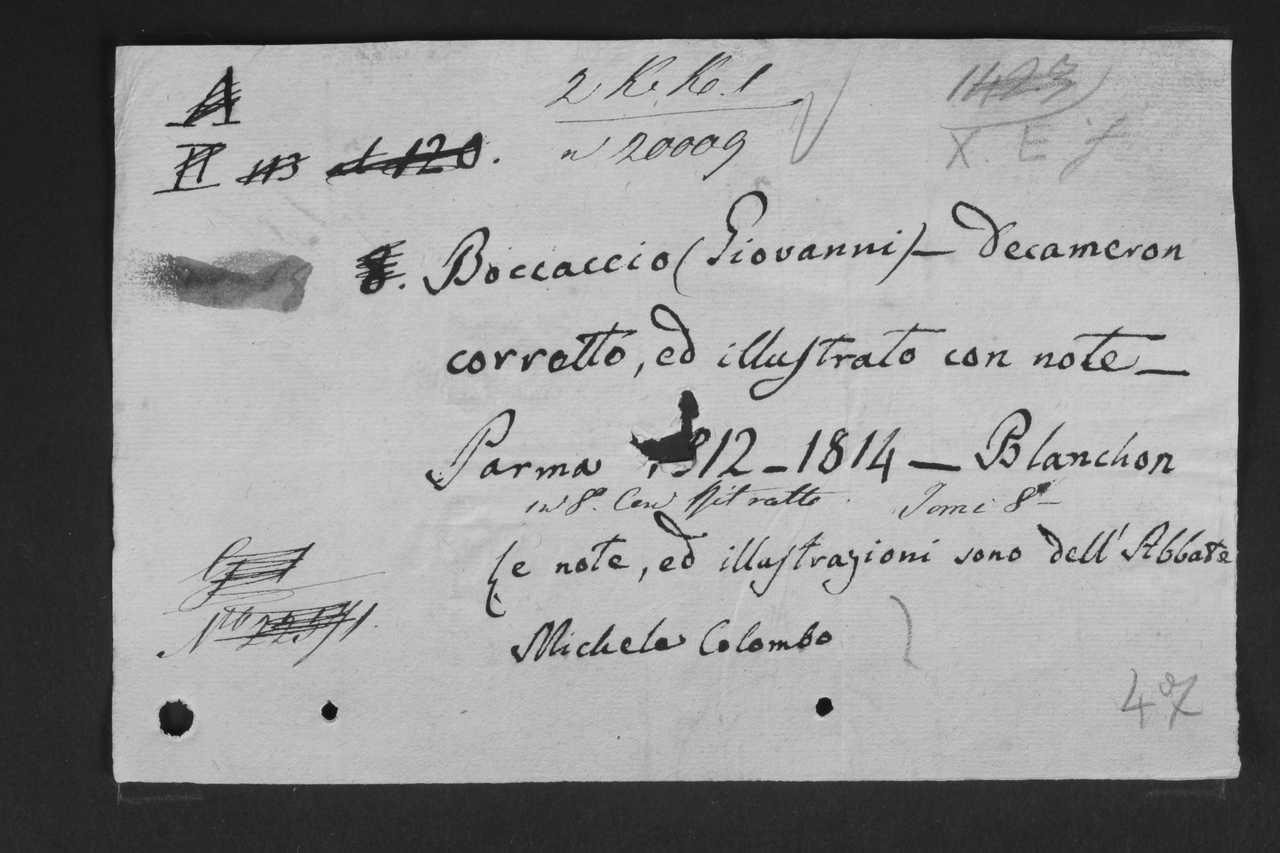 A
2 K. K. 1
1423
n 20009
X. E. f
Boccaccio (Giovanni) — Decameron
corretto, ed illustrato con note —
Parma 1812 — 1814 — Blanchon
in 8º. Con Ritratto. Tomi 8 —
Le note, ed illustrazioni sono dell' Abbate
Michele Colombo